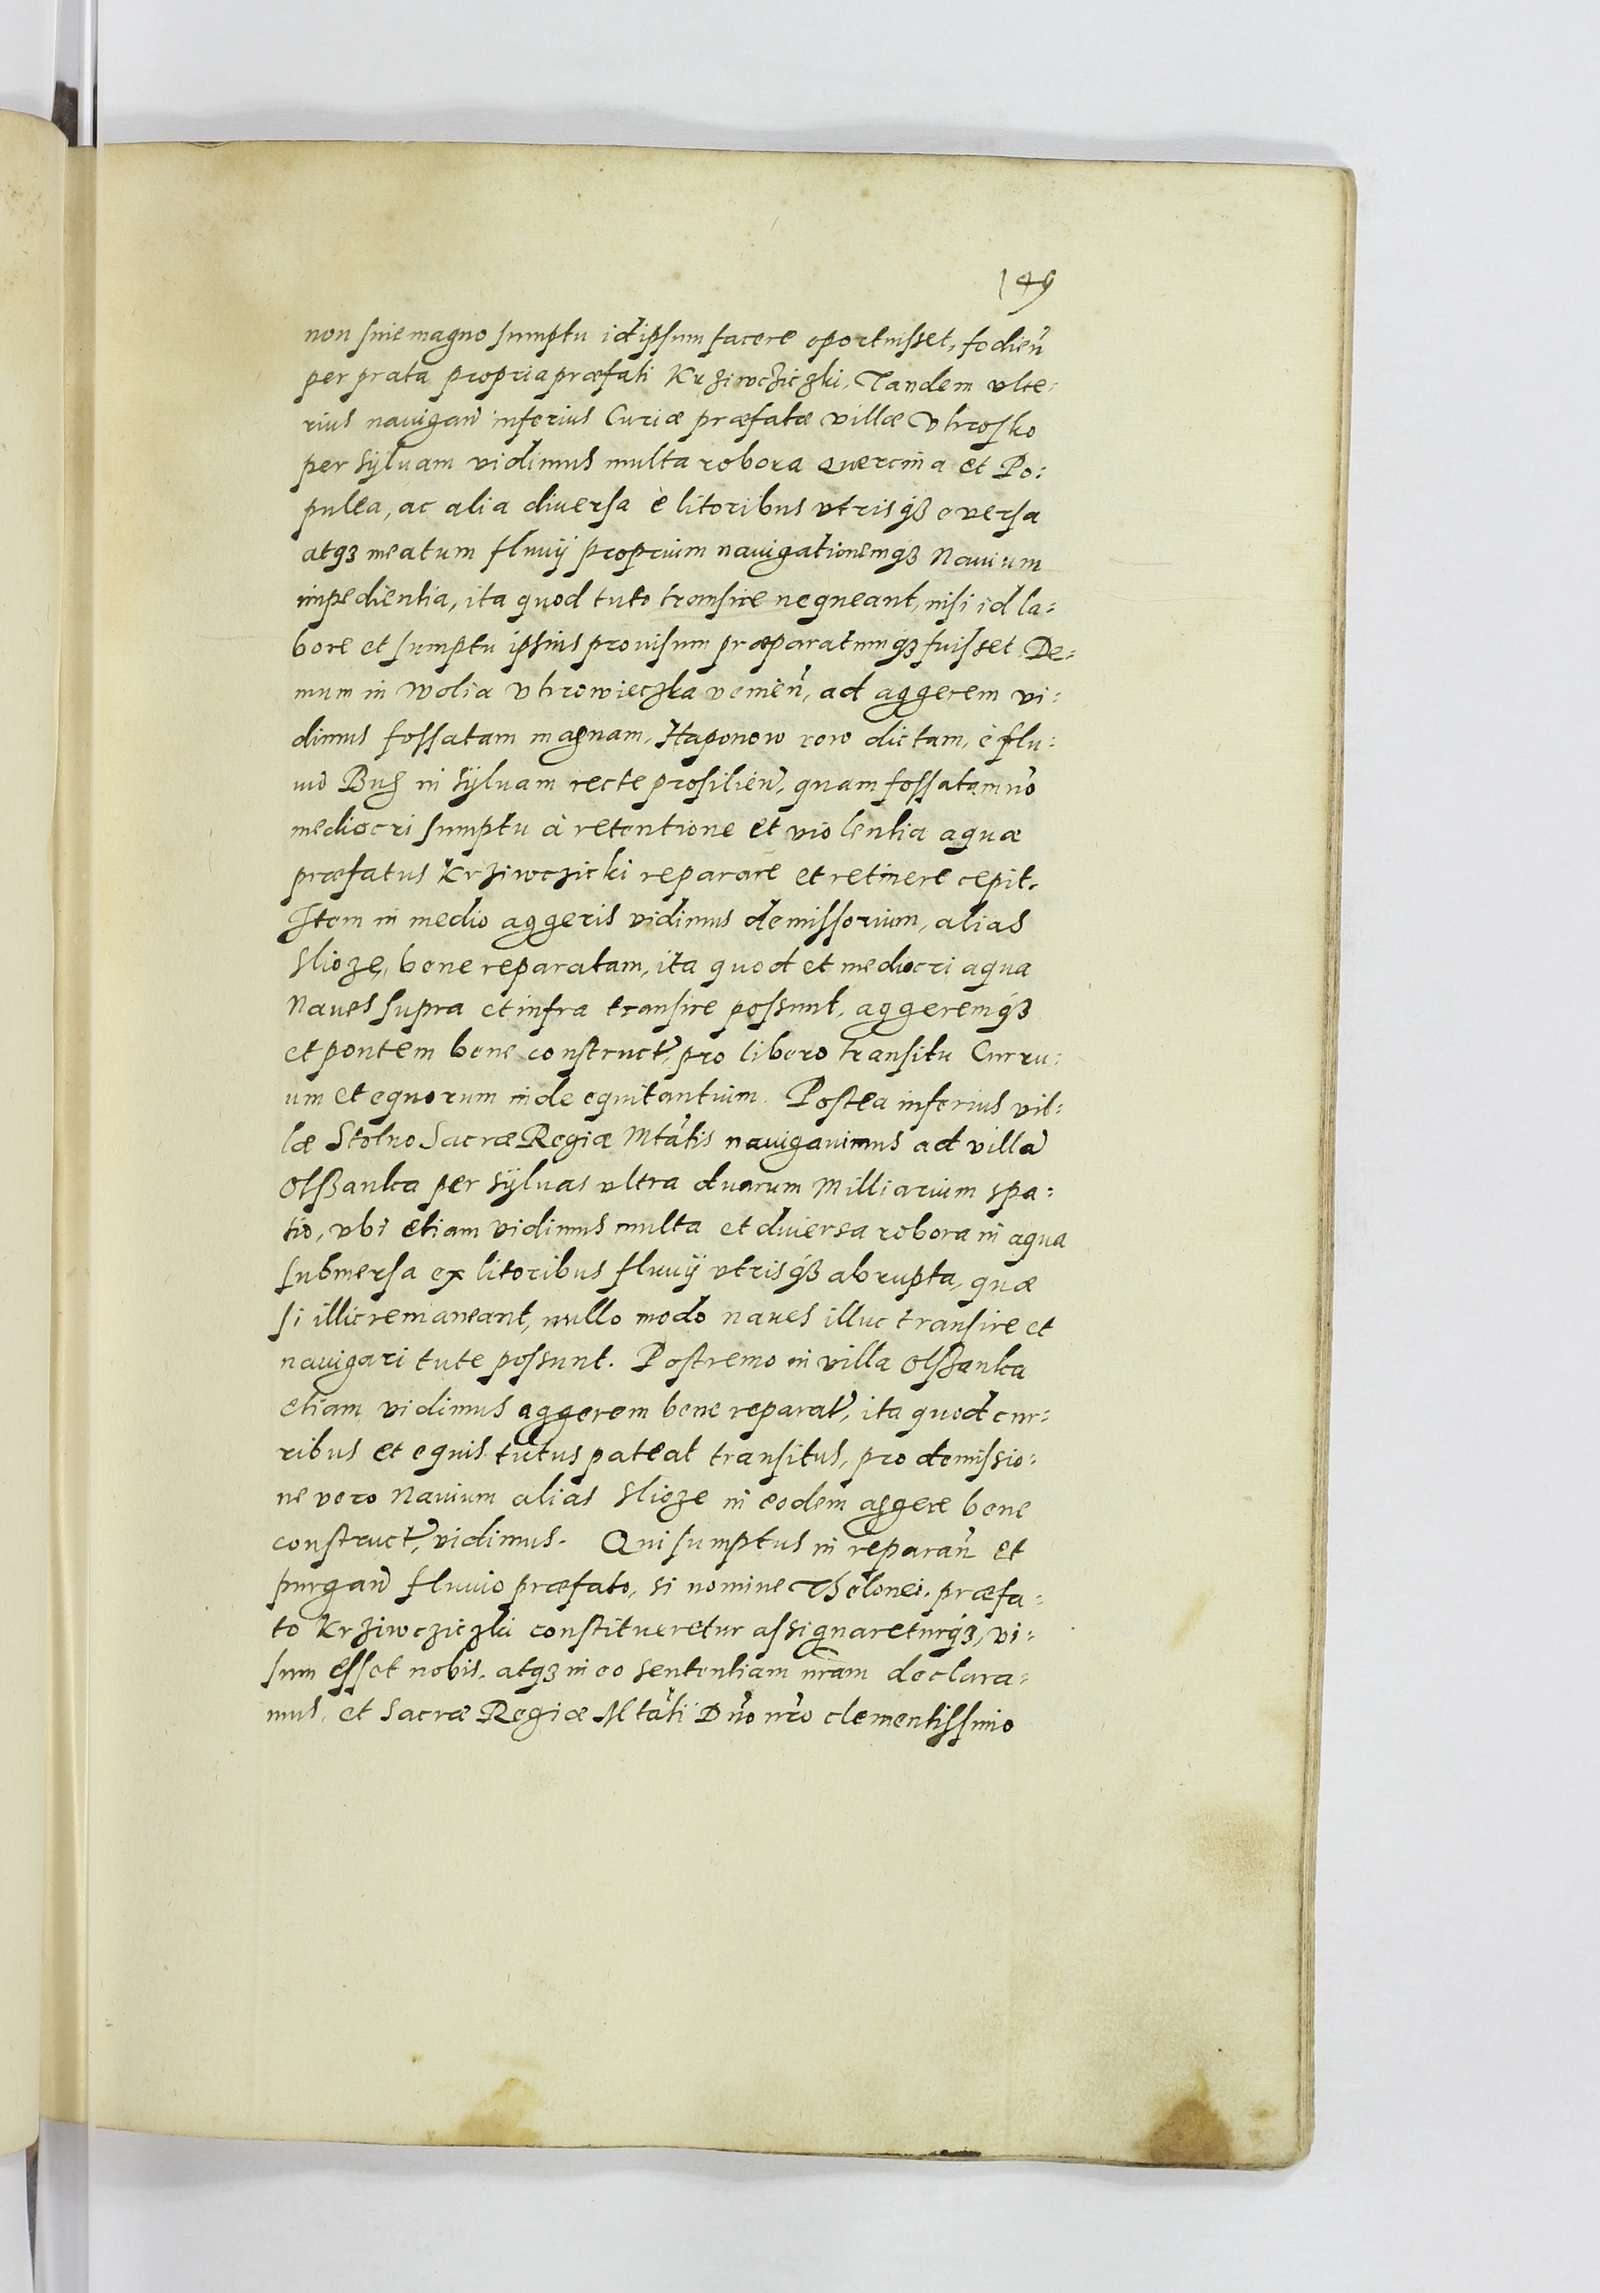 149
non sine magno sumptu id ipsum facere oportuisset, fodien̄
per prata propria præfati Krziwcziczki. Tandem vlte:
rius nauigan̄ inferius Curiæ præfatæ villæ Vhrosko
per syluam vidimus multa robora quercina et Po:
pulea, ac alia diuersa è litoribus vtrisqȝ euersa
atqȝ meatum fluuij proprium nauigationemqȝ Nauium
impedientia, ita quod tuto transire nequeant, nisi id la:
bore et sumptu ipsius prouisum præparatumqȝ fuisset. De:
mum in Wolia Vhrowieczka venien̄, ad aggerem vi:
dimus fossatam magnam, Haponow row dictam, è flu:
uio Bug in syluam recte prosilien̄, quam fossatam nō
mediocri sumptu à retentione et violentia aquæ
præfatus Krziwczicki reparare et retinere cepit.
Item in medio aggeris vidimus demissorium, alias
Slioze, bene reparatam, ita quod et mediocri aqua
Naues supra et infra transire possunt, aggeremqȝ
et pontem bene construct̄, pro libero transitu Curru:
um et equorum inde equitantium. Postea inferius vil:
læ Stolno Sacræ Regiæ Mtātis nauigauimus ad villā
Olßanka per syluas vltra duarum Milliarium spa:
tio, vbi etiam vidimus multa et diuersa robora in aqua
submersa ex litoribus fluuij vtrisqȝ abrupta, quæ
si illic remaneant, nullo modo naues illuc transire et
nauigari tute possunt. Postremo in villa Olßanka
etiam vidimus aggerem bene reparat̄, ita quod cur:
ribus et equis tutus pateat transitus, pro demissio:
ne vero Nauium alias Slioze in eodem aggere bene
construct̄, vidimus. Qui sumptus in reparan̄ et
purgan̄ fluuio præfato, si nomine Tholonei præfa:
to Krziwcziczki constitueretur assignareturqȝ, vi:
sum esset nobis, atqȝ in eo sententiam nr̄am declara:
mus, et Sacræ Regiæ Mtāti Dn̄o nr̄o clementissimo